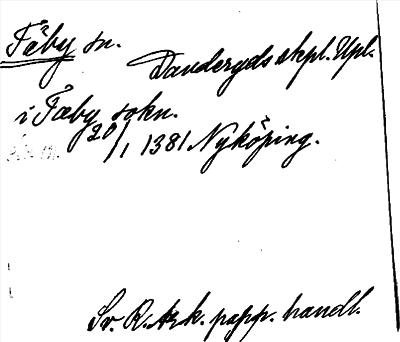 Täby sn.
Danderyds skpl. Upl.
i Tæby sokn.
20/1 1381 Nyköping.
Sv. R. Ark. papp. handl.